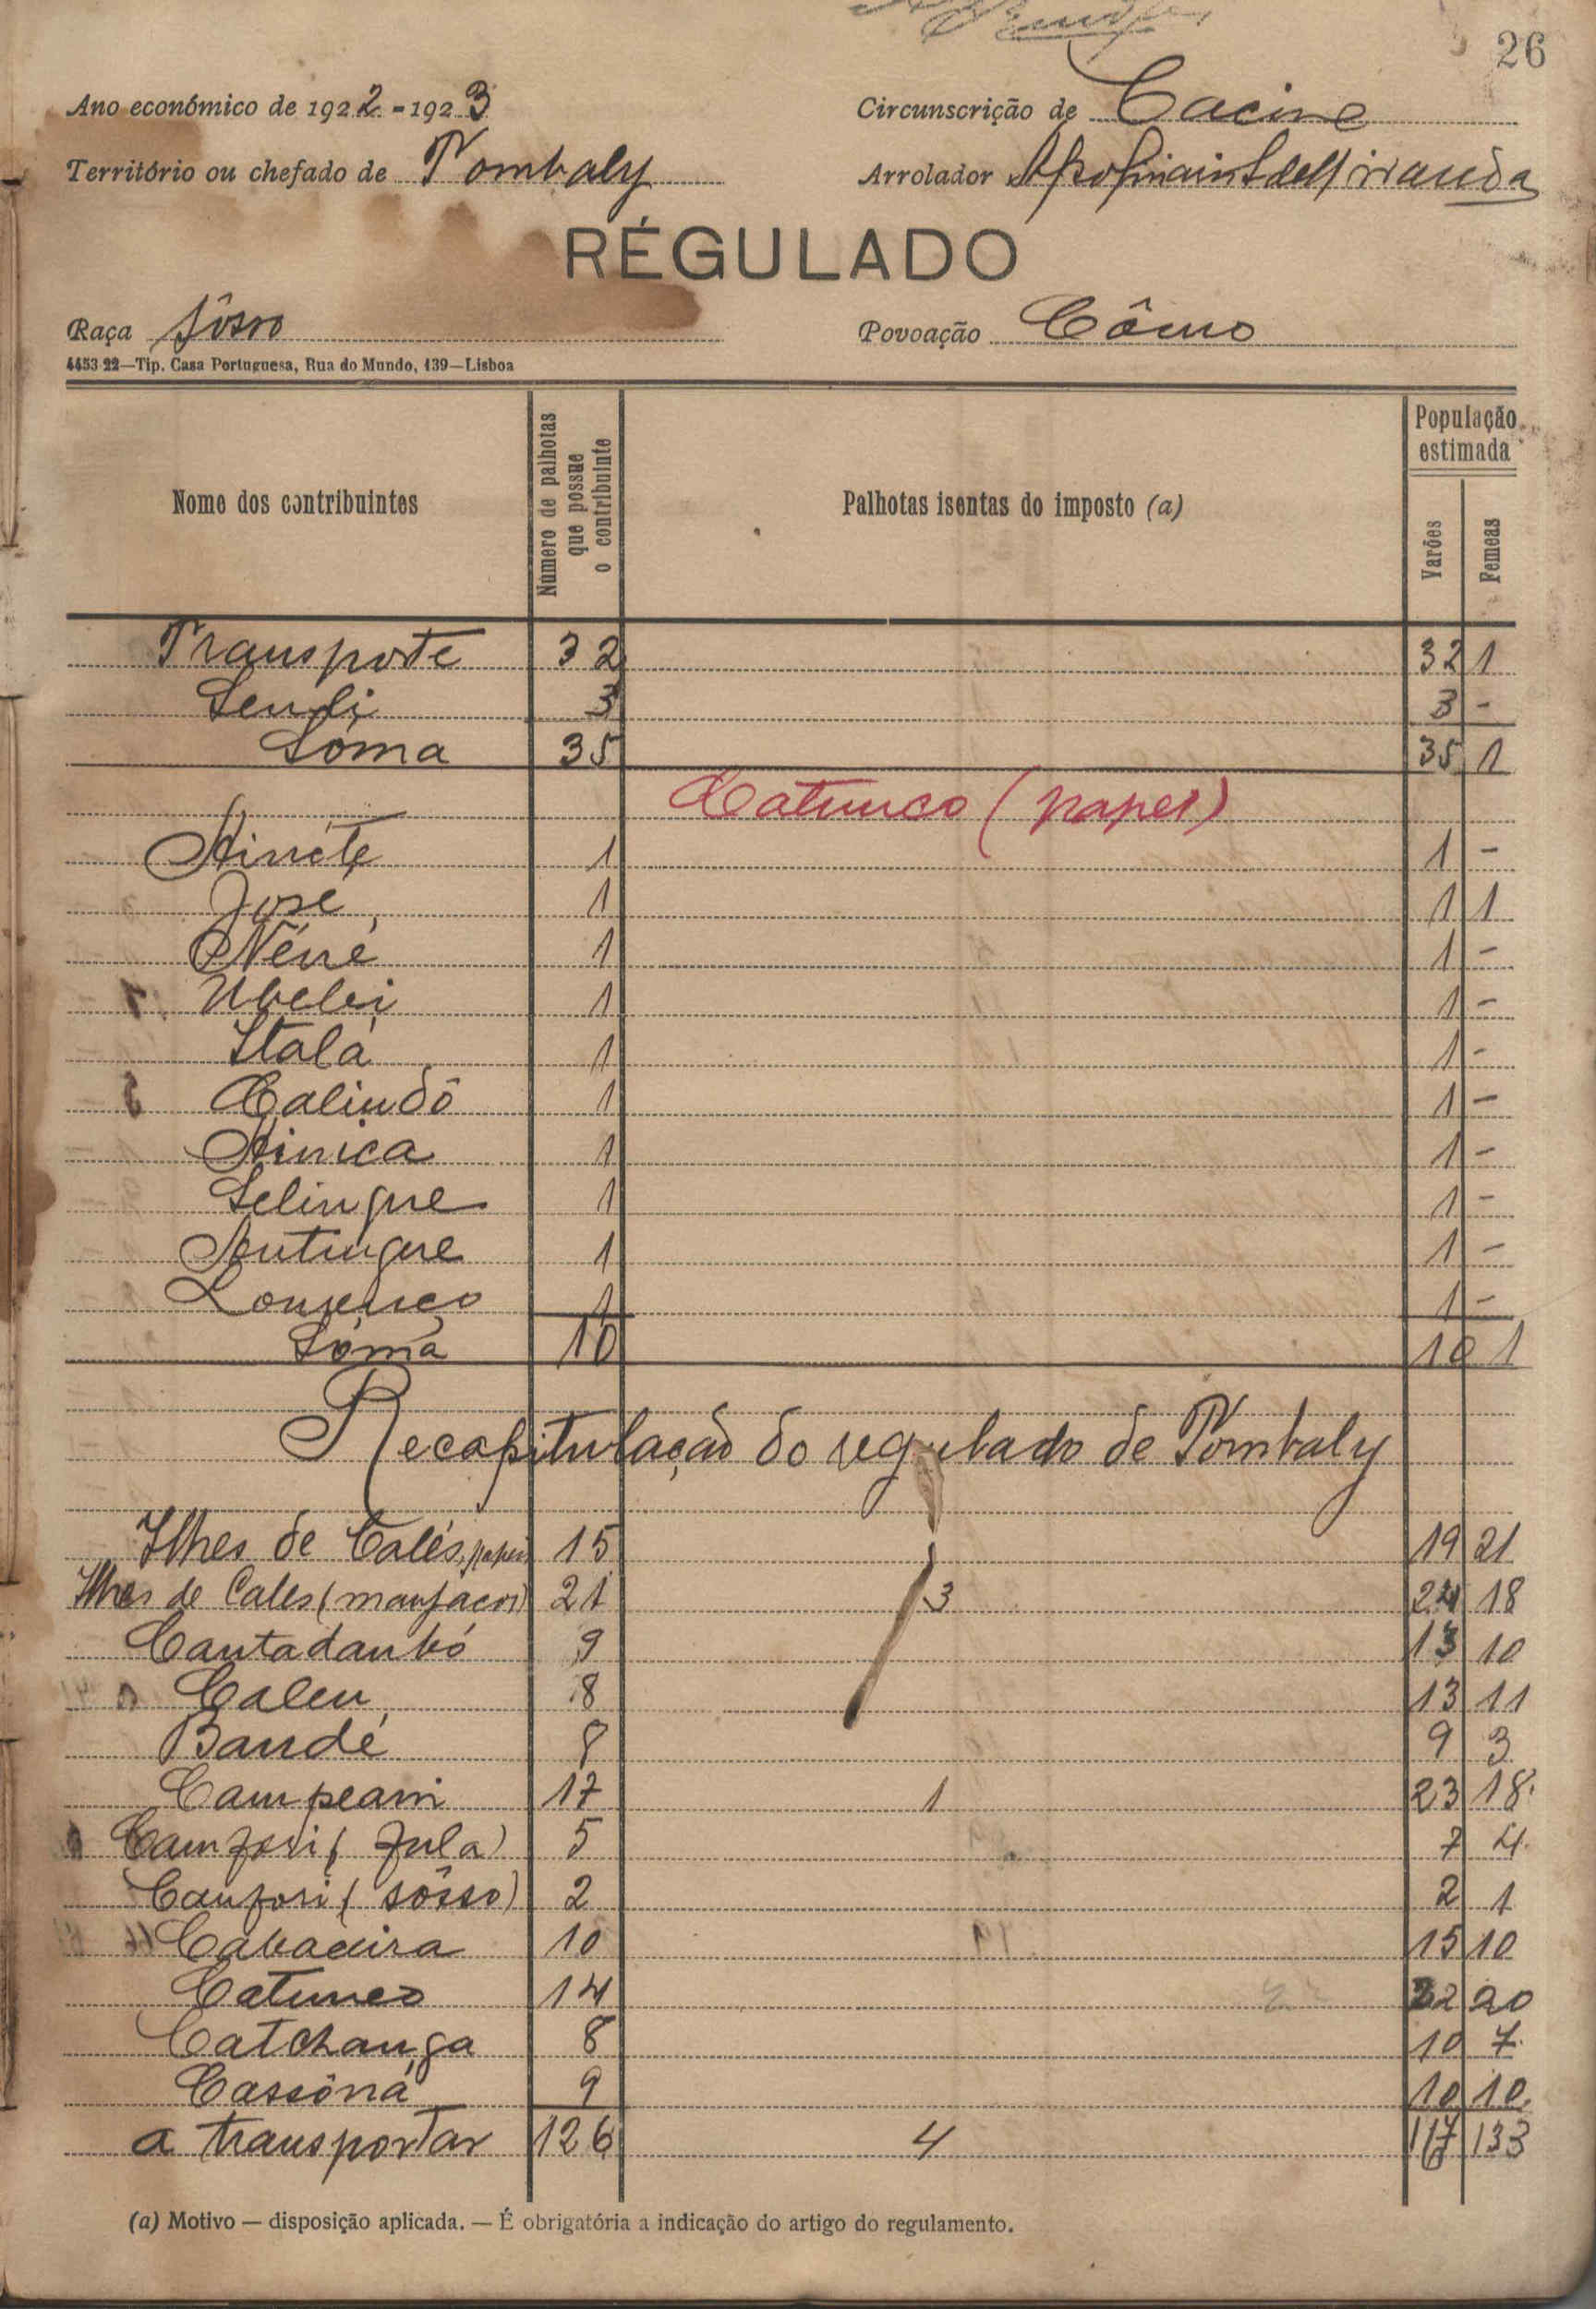 26
Ano económico de 1922-1923 Circunscrição de Cacine
Território ou chefado de Tombaly Arrolador
RÉGULADO
Raça Sôsso Povoação Cômo
4453 22—Tip. Casa Portuguesa, Rua do Mundo, 139—Lisboa
Nome dos contribuintes Número de palhotas que possue o contribuinte Palhotas isentas do imposto (a) População estimada Varões Femeas
Transporte 32 32 1
3 3 -
Sôma 35 35 1
Catunco (papel)
1 1 -
José 1 1 1
Néné 1 1 -
1 1 -
Italá 1 1 -
Calindó 1 1 -
1 1 -
Selingue 1 1 -
1 1 -
Lourenço 1 1 -
Sôma 10 10 1
Recapitulação do regulado de Tombaly
Ilhes de Calés, papeis 15 19 21
Ilhes de Cales (manjacos) 21 3 24 18
Cantadanbó 9 13 10
Caleu 8 13 11
Bandé 8 9 3
Campeani 17 1 23 18
Camfori (fula) 5 7 4
Canfori (sôsso) 2 2 1
Cabaceira 10 15 10
Catunco 14 22 20
Catchanga 8 10 7
Cassôná 9 10 10
a transportar 126 4 167 133
(a) Motivo — disposição aplicada. — É obrigatória a indicação do artigo do regulamento.